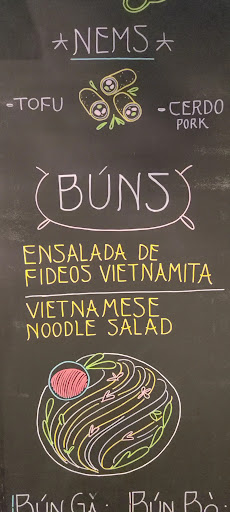 *NEMS*
-TOFU
-CERDO
PORK
BÚNS
ENSALADA DE
FIDEOS VIETNAMITA
VIETNAMESE
NOODLE SALAD
BÚN GÀ: BÚN BÒ: